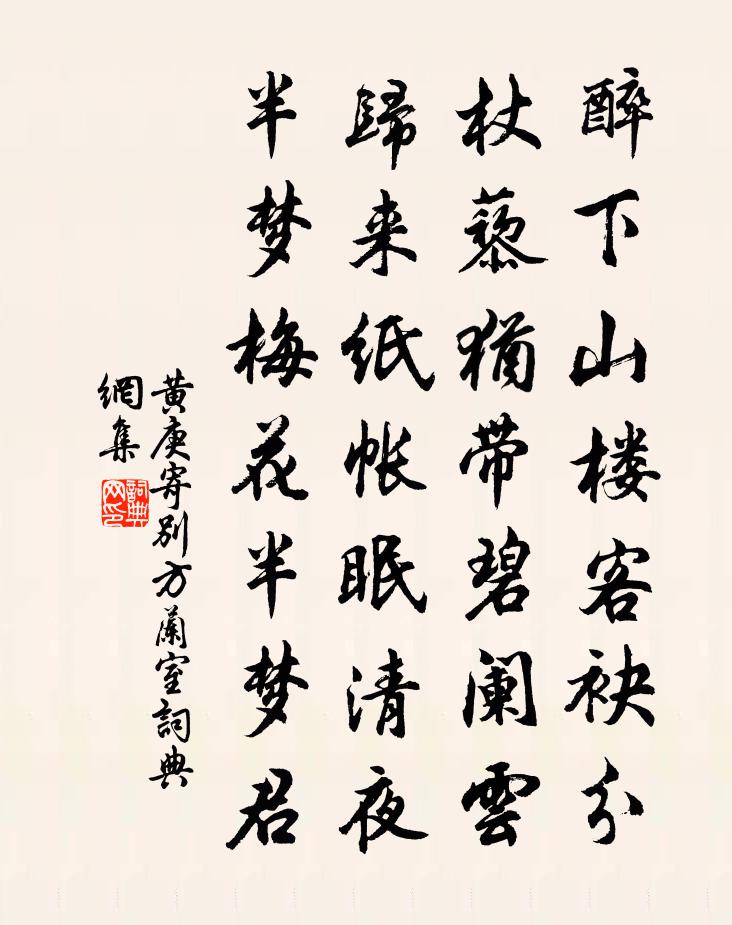 醉下山楼客袂分
杖藜猶带碧阑雲
歸来纸帐眠清夜
半梦梅花半梦君
黄庚寄别方蘭室詞典
網集
詞典
网印